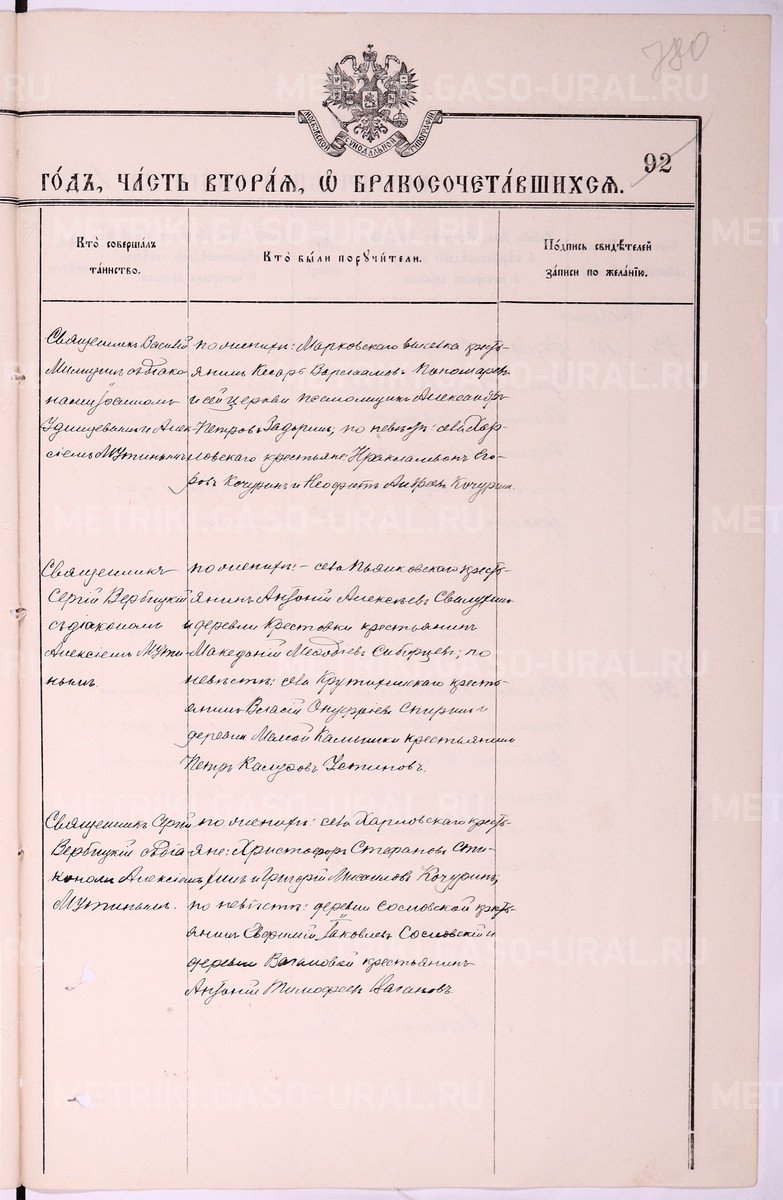 780
МОСКОВСКОЙ СѴНОДАЛЬНОЙ ТИПОГРАФІИ
92
ГО́ДЪ, ЧА́СТЬ ВТОРА́Я, Ѡ БРАКОСОЧЕТА́ВШИХСЯ.
Кто̀ соверша́лъ
та́инство.
Кто̀ бы́ли поручи́тели.
По́дпись свидѣ́телей
за́писи по жела́нію.
Священникъ Василій
съ діако-
номъ Іосифомъ
Удинцевымъ и Алек-
сіемъ Мутинымъ
по женихѣ: Марковскаго выселка кресть-
янинъ Варлаамовъ Пономаревъ
и сей церкви псаломщикъ Александръ
Петровъ Задоринъ, по невѣстѣ: села Хар-
ловскаго крестьяне Его-
ровъ Кочуринъ и Неофитъ Кочуринъ.
Священникъ
Сергій Вербицкій
съ діакономъ
Алексіемъ Мути-
нымъ.
по женихѣ: села Пьянковскаго кресть-
янинъ Антоній Алексѣевъ
и деревни Крестовки крестьянинъ
Македоній Меѳодіевъ Сибирцевъ; по
невѣстѣ: села Крутихинскаго кресть-
янинъ Власій Онуфріевъ Спиринъ и
деревни Малой Камышки крестьянинъ
Петръ Устиновъ.
Священникъ Сергій
Вербицкій съ діа-
кономъ Алексіемъ
Мутинымъ.
по женихѣ: села Харловскаго кресть-
яне: Христофоръ Стефановъ Спи-
ринъ и Григорій Михаиловъ Кочуринъ,
по невѣстѣ: деревни Сосновской кресть-
янинъ Іаковлевъ Сосновскій и
деревни Вагановой крестьянинъ
Антоній Тимофеевъ Вагановъ.
METRIKI.GASO-URAL.RU